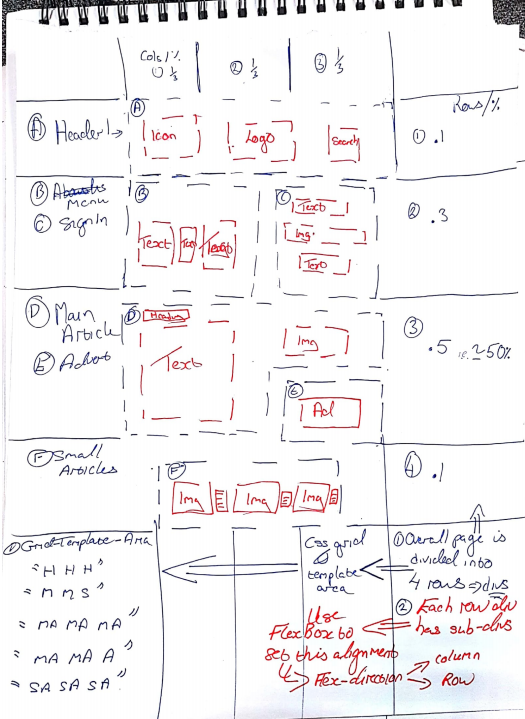 Cols/%
① 1/3 ② 1/3 ③ 1/3
Rows/%
Ⓐ Header
Ⓐ
Icon Logo Search
① .1
Ⓑ
Menu
Ⓒ SignIn
Ⓑ
Text Text
Ⓒ
Text
Img.
Text
② .3
Ⓓ Main
Article
Ⓔ Advert
Ⓓ Heading
Text
Img
Ⓔ
Ad
③
.5 i.e. ≥50%
Ⓕ Small
Articles
Ⓕ
Img Img Img
④ .1
① Grid-Template-Area
"H H H"
= M M S"
= MA MA MA"
= MA MA A"
= SA SA SA"
Css grid
template
area
① Overall page is
divided into
4 rows ⇒ divs
② Each row div
has sub-divs
Use
FlexBox to
set this alignment
Flex-direction
column
Row